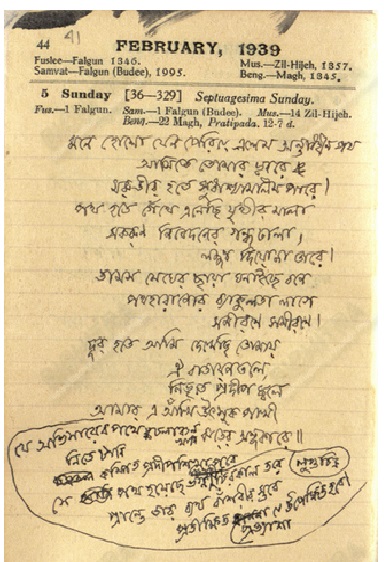 44 41
FEBRUARY, 1939
Fuslee—Falgun 1346. Mus.—Zil-Hijeh, 1357.
Samvat—Falgun (Budee), 1995. Beng.—Magh, 1345.
5 Sunday [36—329] Septuagesima Sunday.
Fus.—1 Falgun. Sam.—1 Falgun (Budee). Mus.—14 Zil-Hijeh.
Beng.—22 Magh, Pratipada. 12-7 d.
মনে হোলো যেন পেরিয়ে এলেম অন্তবিহীন পথ
আসিতে তোমার দ্বারে
মরুতীর হতে সুধাশ্যামলিম পারে।
পথ হতে গেঁথে এনেছি যূথীর মালা
সকরুণ নিবেদনের গন্ধ ঢালা,
লজ্জা দিয়োনা তারে।
তামস মেঘের ছায়া ঘনাইছে বনে
পথহারানোর ব্যাকুলতা লাগে
সমীরণে সমীরণে।
দূর হতে আমি দেখেছি তোমার
ঐ বাতায়নতলে
নিভৃত প্রদীপ জ্বলে
আমার এ আঁখি উৎসুক পাখী
ঝড়ের অন্ধকারে॥
যে অভিসারের পথে
সে পথ হয়েছে
প্রান্তে তার ব্যর্থ বাঁশরীর সুরে
প্রত্যাশা